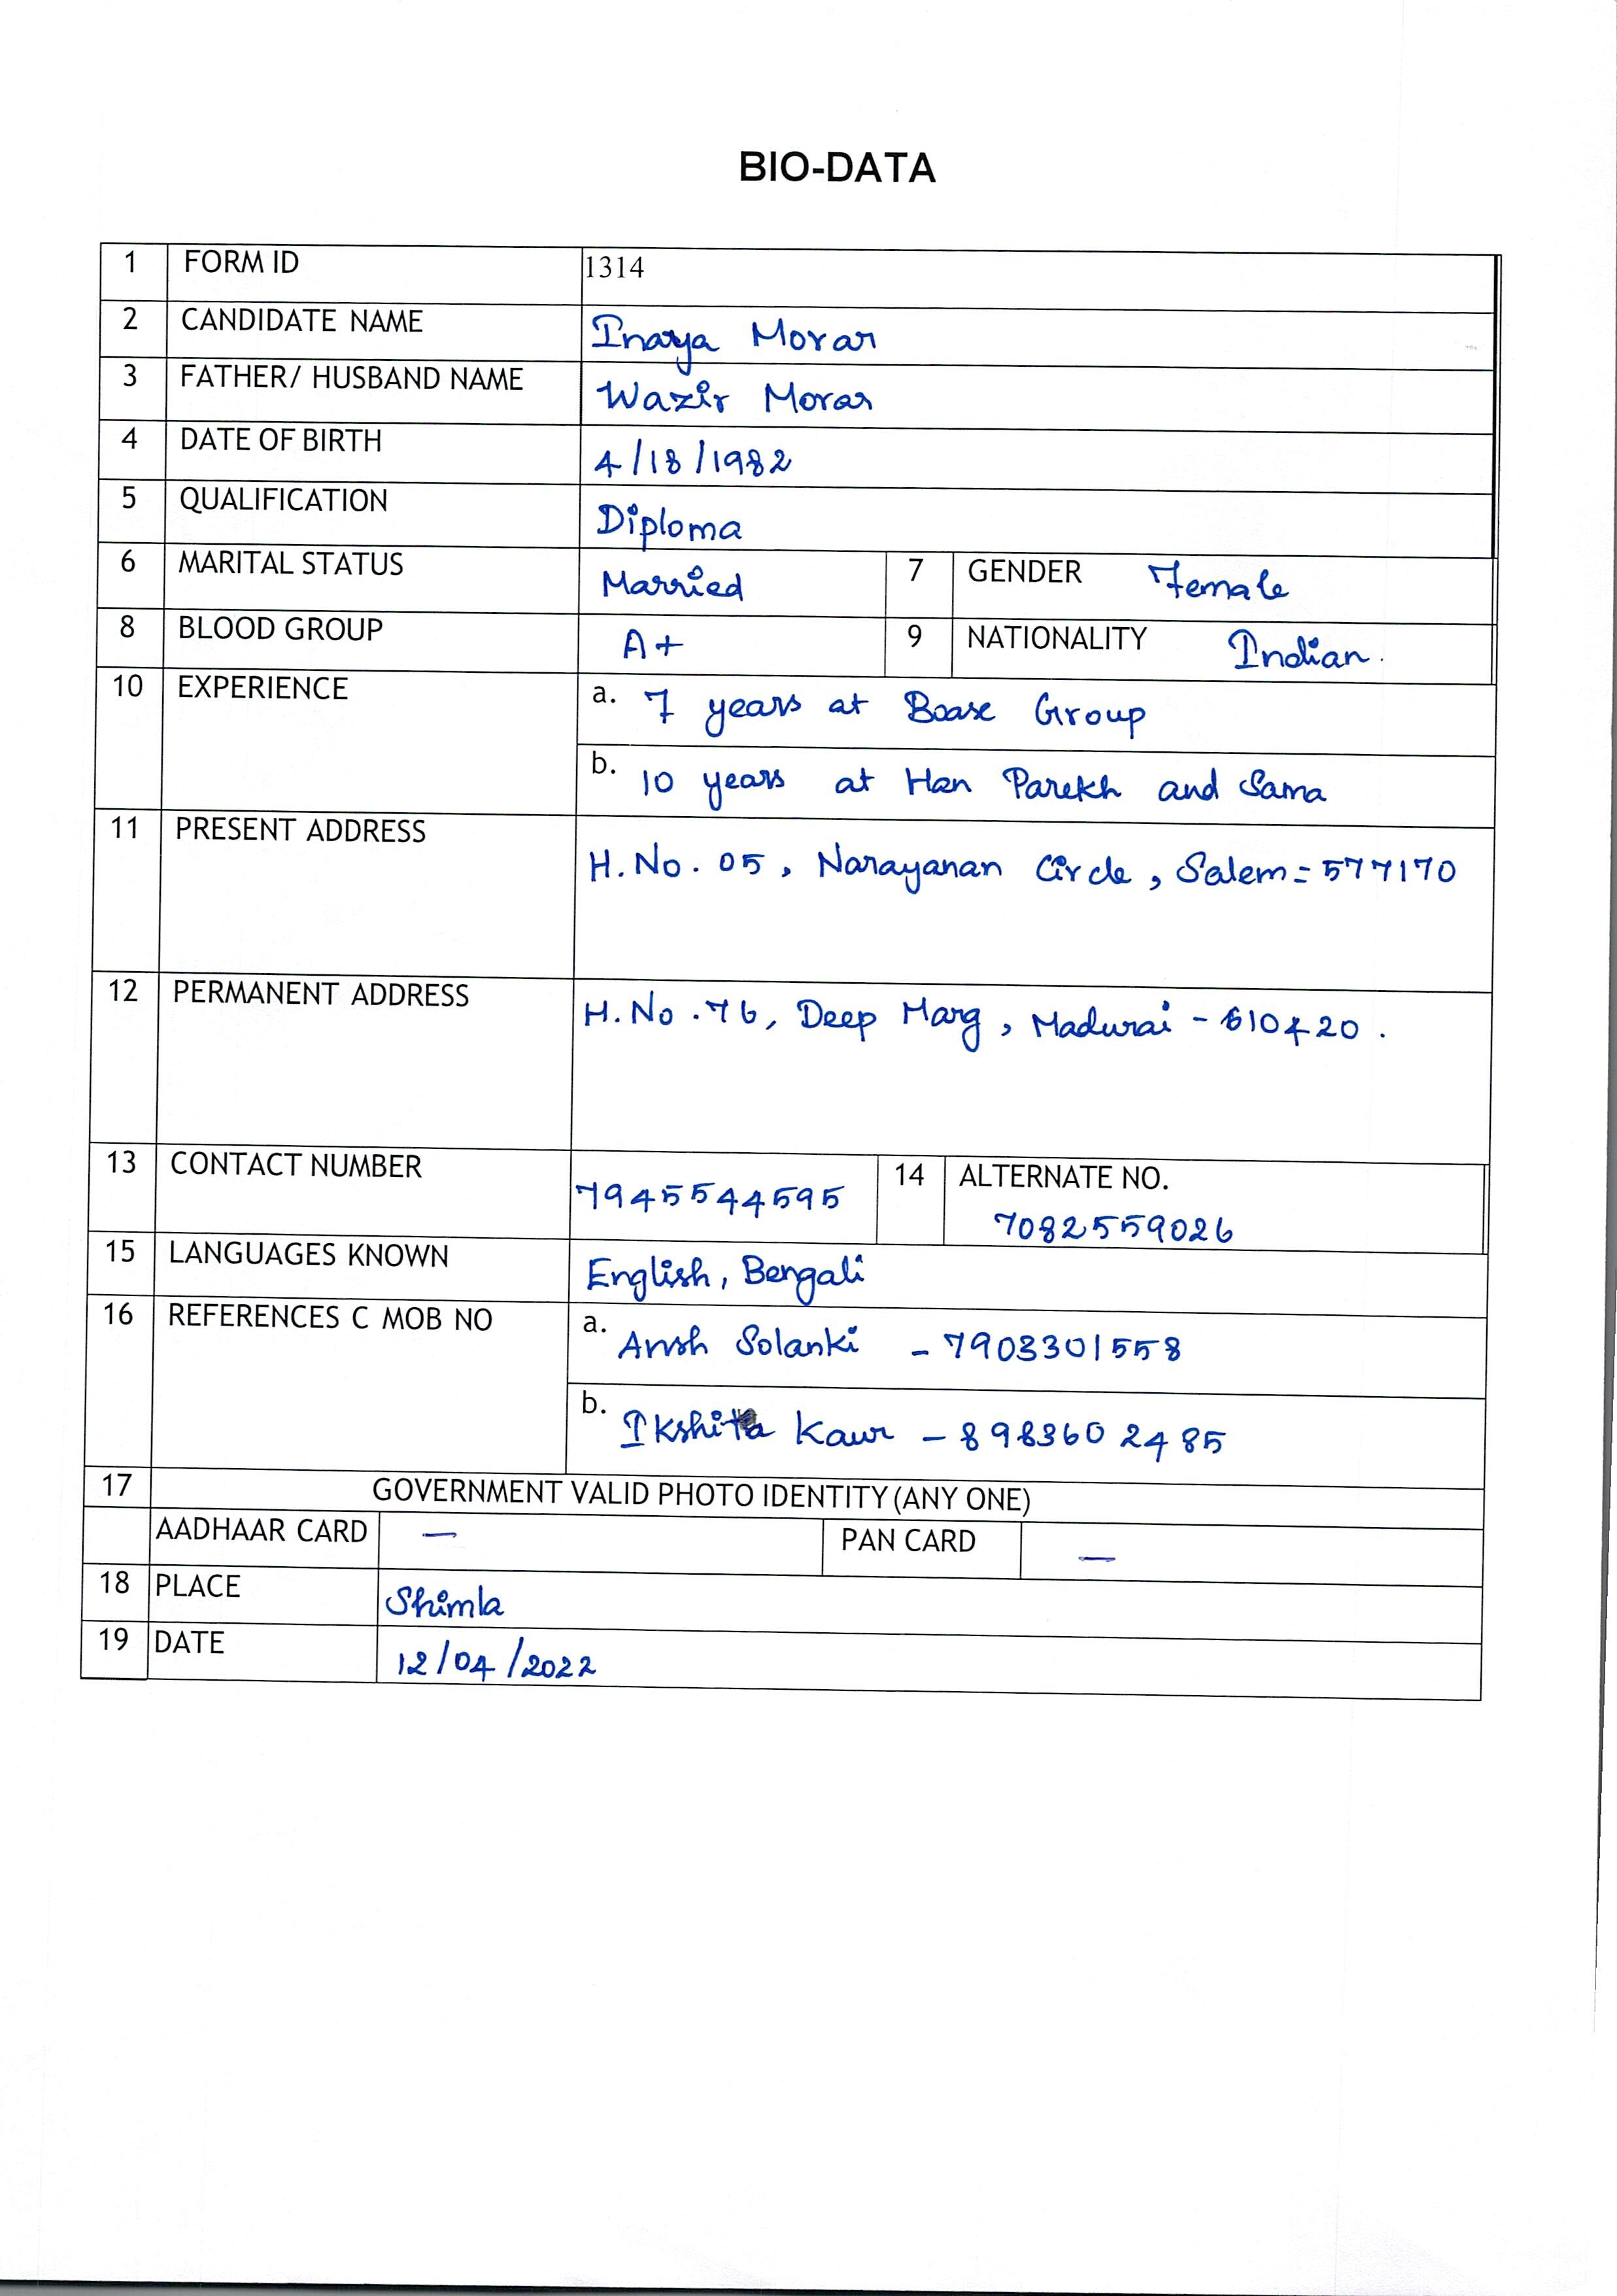 BIO-DATA
1 FORM ID 1314
2 CANDIDATE NAME Inaya Morar
3 FATHER/ HUSBAND NAME Wazir Morar
4 DATE OF BIRTH 4/18/1982
5 QUALIFICATION Diploma
6 MARITAL STATUS Married 7 GENDER Female
8 BLOOD GROUP A+ 9 NATIONALITY Indian.
10 EXPERIENCE a. 7 years at Boase Group
b. 10 years at Han Parekh and Sama
11 PRESENT ADDRESS
H.No. 05, Narayanan Circle, Salem = 577170
12 PERMANENT ADDRESS
H.No. 76, Deep Marg, Madurai - 610420.
13 CONTACT NUMBER 7945544595 14 ALTERNATE NO.
7082559026
15 LANGUAGES KNOWN English, Bengali
16 REFERENCES C MOB NO a. Ansh Solanki - 7903301558
b. Ikshita Kaur - 8983602485
17 GOVERNMENT VALID PHOTO IDENTITY (ANY ONE)
AADHAAR CARD — PAN CARD —
18 PLACE Shimla
19 DATE 12/04/2022